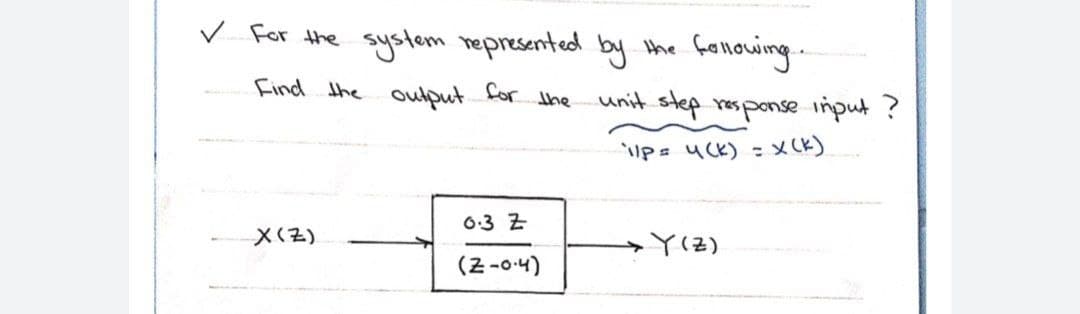 ✓ For the system represented by the following.
Find the output for the unit step response input ?
i/p = u(k) = x(k)
X(Z)
0.3 Z
(Z-0.4)
Y(Z)